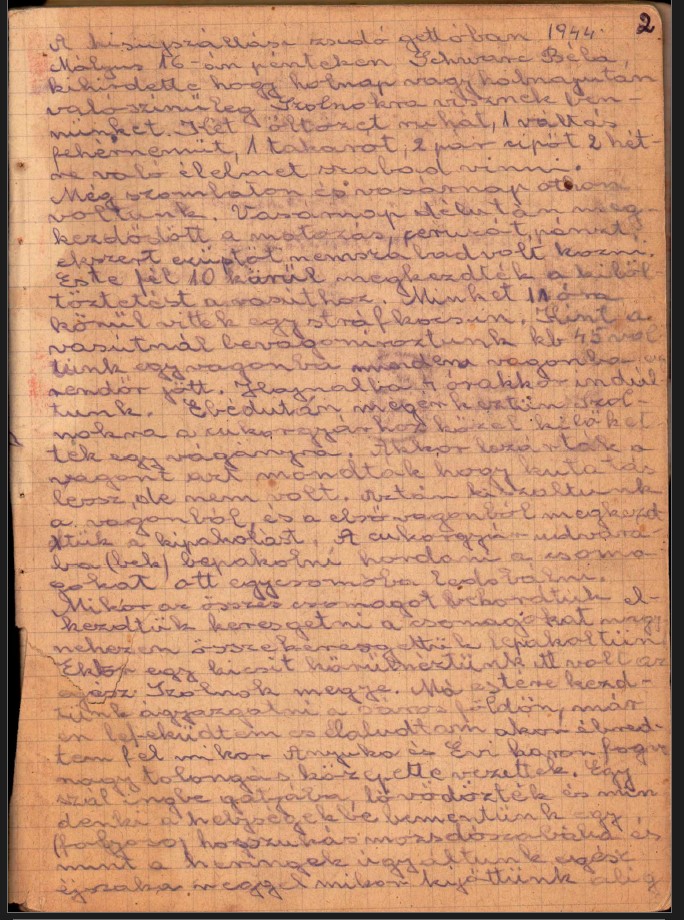 2
A kisujszállási zsidó gettóban 1944.
Május 16-án pénteken Schwarc Béla,
kihirdette hogy holnap vagy holnapután
valószinüleg Szolnokra visznek ben-
nünket. Két öltözet ruhát, 1 váltás
fehérnemüt, 1 takarót, 2 pár cipőt 2 hét-
re való élelmet szabad vinni.
Még szombaton és vasárnap otthon
voltunk. Vasárnap délután meg-
kezdödött a motozás, ceruzát, pénzt,
ékszert ezüstöt nem szabad volt hozni.
Este fél 10 körül megkezdték a kiköl-
töztetést a vasúthoz. Minket 11 óra
körül vittek egy stráfkocsin. Kint a
vasútnál bevagoniroztunk kb 45 vol
tunk egy vagonba minden vagonba
rendőr jött. Hajnalba 4 órakkor indúl
tunk. Ebédután megérkeztün Szol-
nokra a cukorgyárhoz közel kilöket-
ték egy vágányra. Akkor lezárták a
vagont azt mondták hogy kutatás
lessz, de nem volt. Aztán kiszáltunk
a vagonból, és a első vagonból megkezd
tük a kipakolást. A cukorgyár udvará-
ba (bek) bepakolni hordani a csoma-
gokat, ott egycsomóba ledobálni.
Mikor az összes csomagot behordtuk el-
kezdtük keresgetni a csomagokat nagy
nehezen összekeresgettük lepakoltün
Ekkor egy kicsit körülnéztünk itt volt az
egész Szolnok megye. Má estére kezd-
tünk ágyazgatni a sáros földön, már
én lefeküdtem és elaludtam akor ébred-
tem fel mikor Anyuka és Évi karon fogva
nagy tolongás közepette vezettek. Egy
szál ingbe gatyába, lövödözték és min
denki a helységekbe bementünk egy
(folyoso) hosszukás mosdószobába és
mint a heringek úgy áltunk egész
éjszaka reggel mikor kijöttünk alig